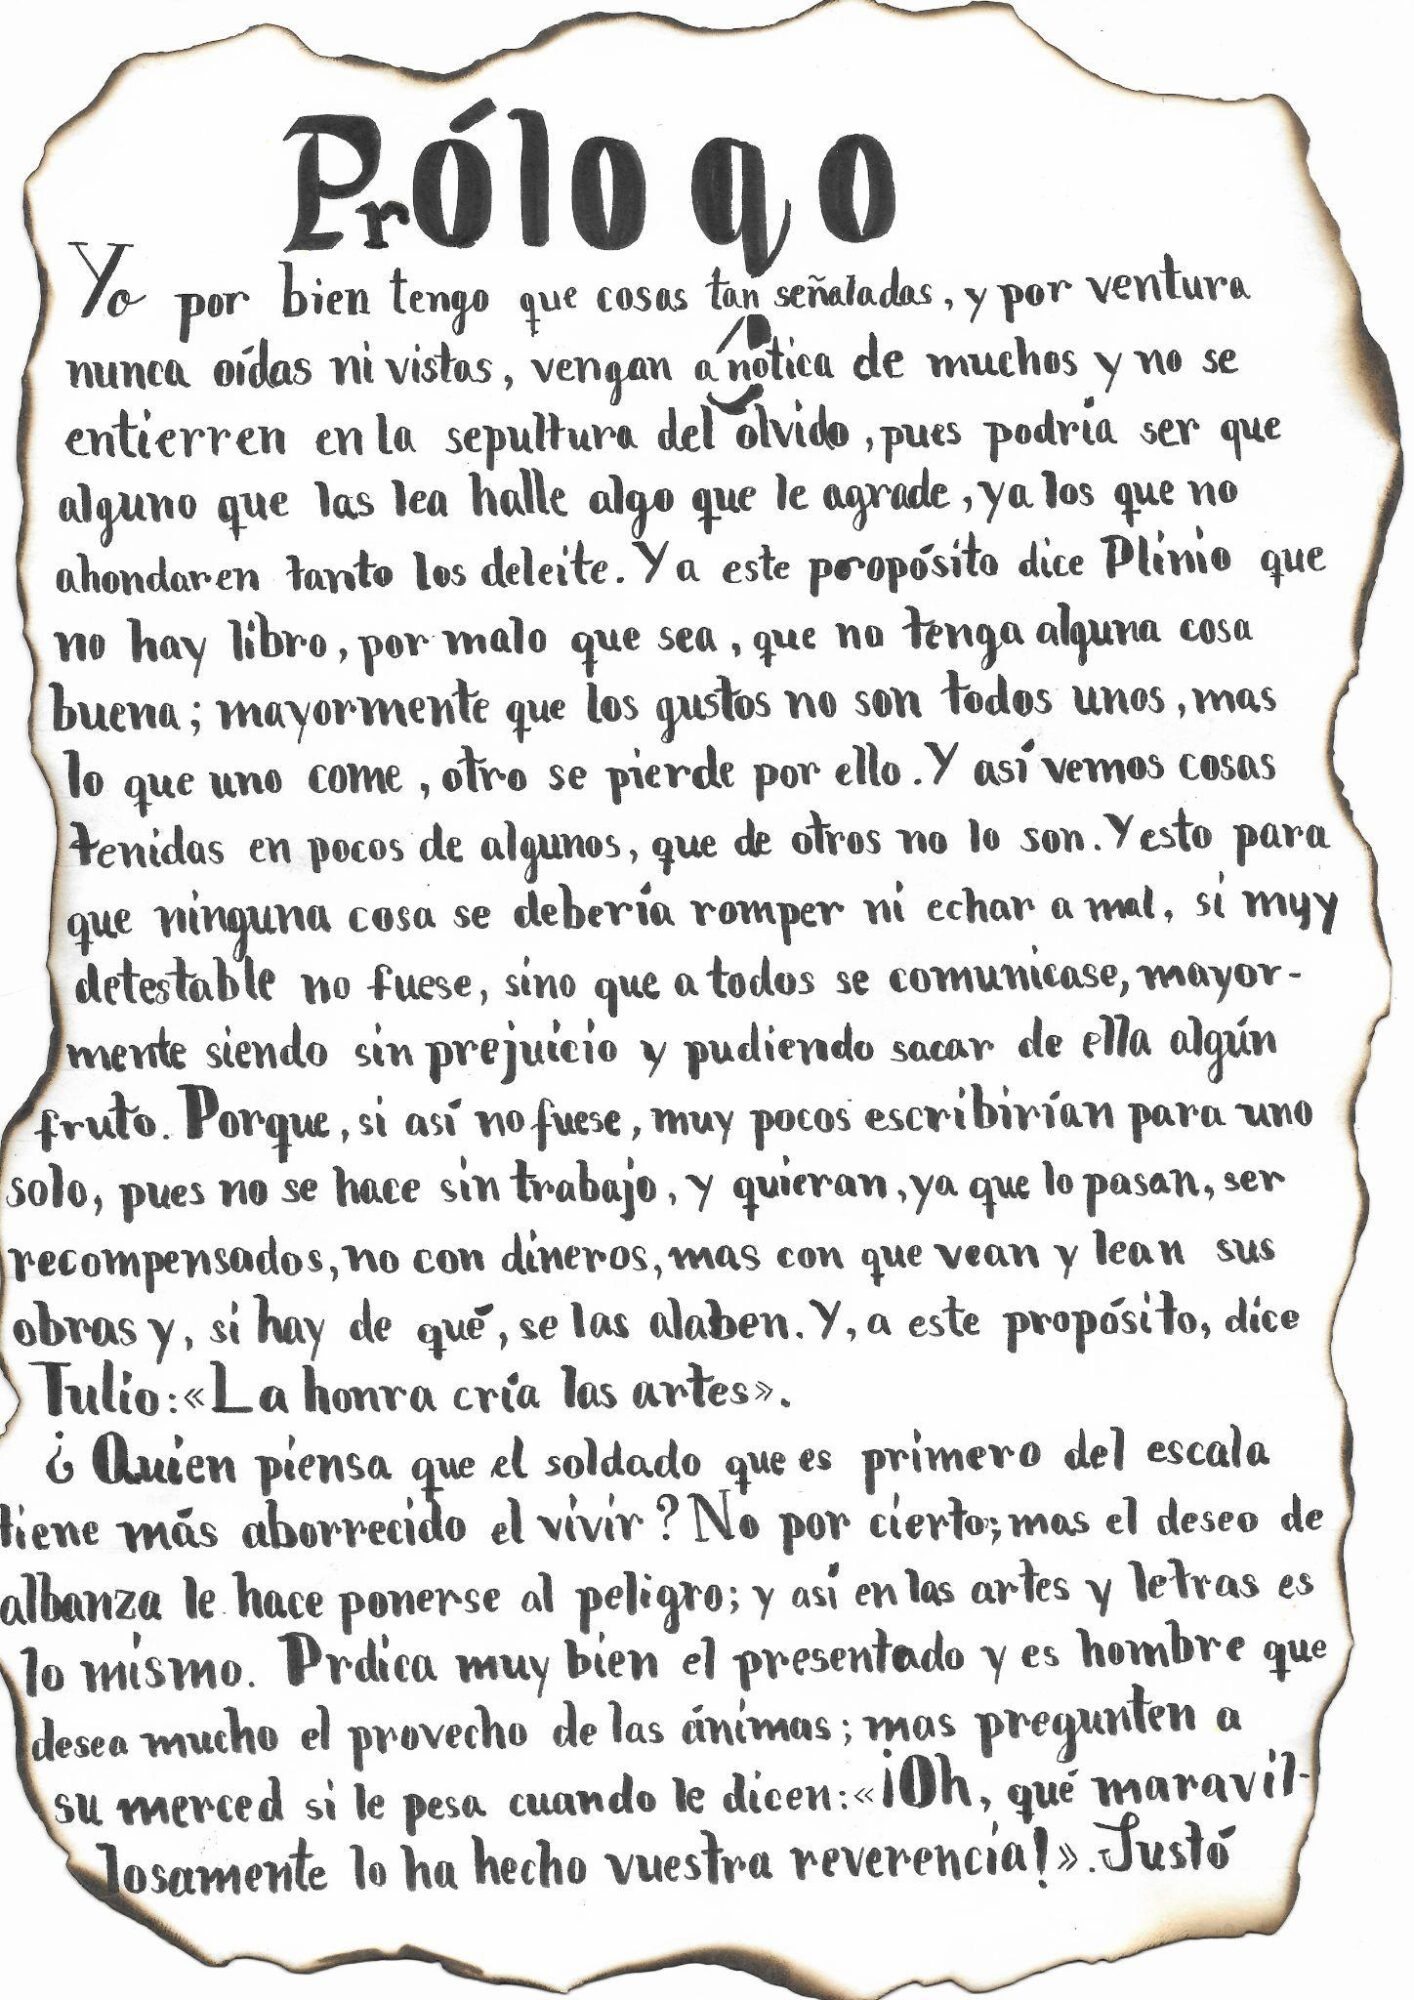 Prólogo
Yo por bien tengo que cosas tan señaladas, y por ventura
nunca oídas ni vistas, vengan a nótica de muchos y no se
entierren en la sepultura del olvido, pues podría ser que
alguno que las lea halle algo que le agrade, y a los que no
ahondaren tanto los deleite. Y a este propósito dice Plinio que
no hay libro, por malo que sea, que no tenga alguna cosa
buena; mayormente que los gustos no son todos unos, mas
lo que uno come, otro se pierde por ello. Y así vemos cosas
tenidas en pocos de algunos, que de otros no lo son. Y esto para
que ninguna cosa se debería romper ni echar a mal, si muy
detestable no fuese, sino que a todos se comunicase, mayor-
mente siendo sin prejuicio y pudiendo sacar de ella algún
fruto. Porque, si así no fuese, muy pocos escribirían para uno
solo, pues no se hace sin trabajo, y quieran, ya que lo pasan, ser
recompensados, no con dineros, mas con que vean y lean sus
obras y, si hay de qué, se las alaben. Y, a este propósito, dice
Tulio: «La honra cría las artes».
¿Quien piensa que el soldado que es primero del escala
tiene más aborrecido el vivir? No por cierto; mas el deseo de
albanza le hace ponerse al peligro; y así en las artes y letras es
lo mismo. Prdica muy bien el presentado y es hombre que
desea mucho el provecho de las ánimas; mas pregunten a
su merced si le pesa cuando le dicen: «¡Oh, qué maravil-
losamente lo ha hecho vuestra reverencia!». Justó